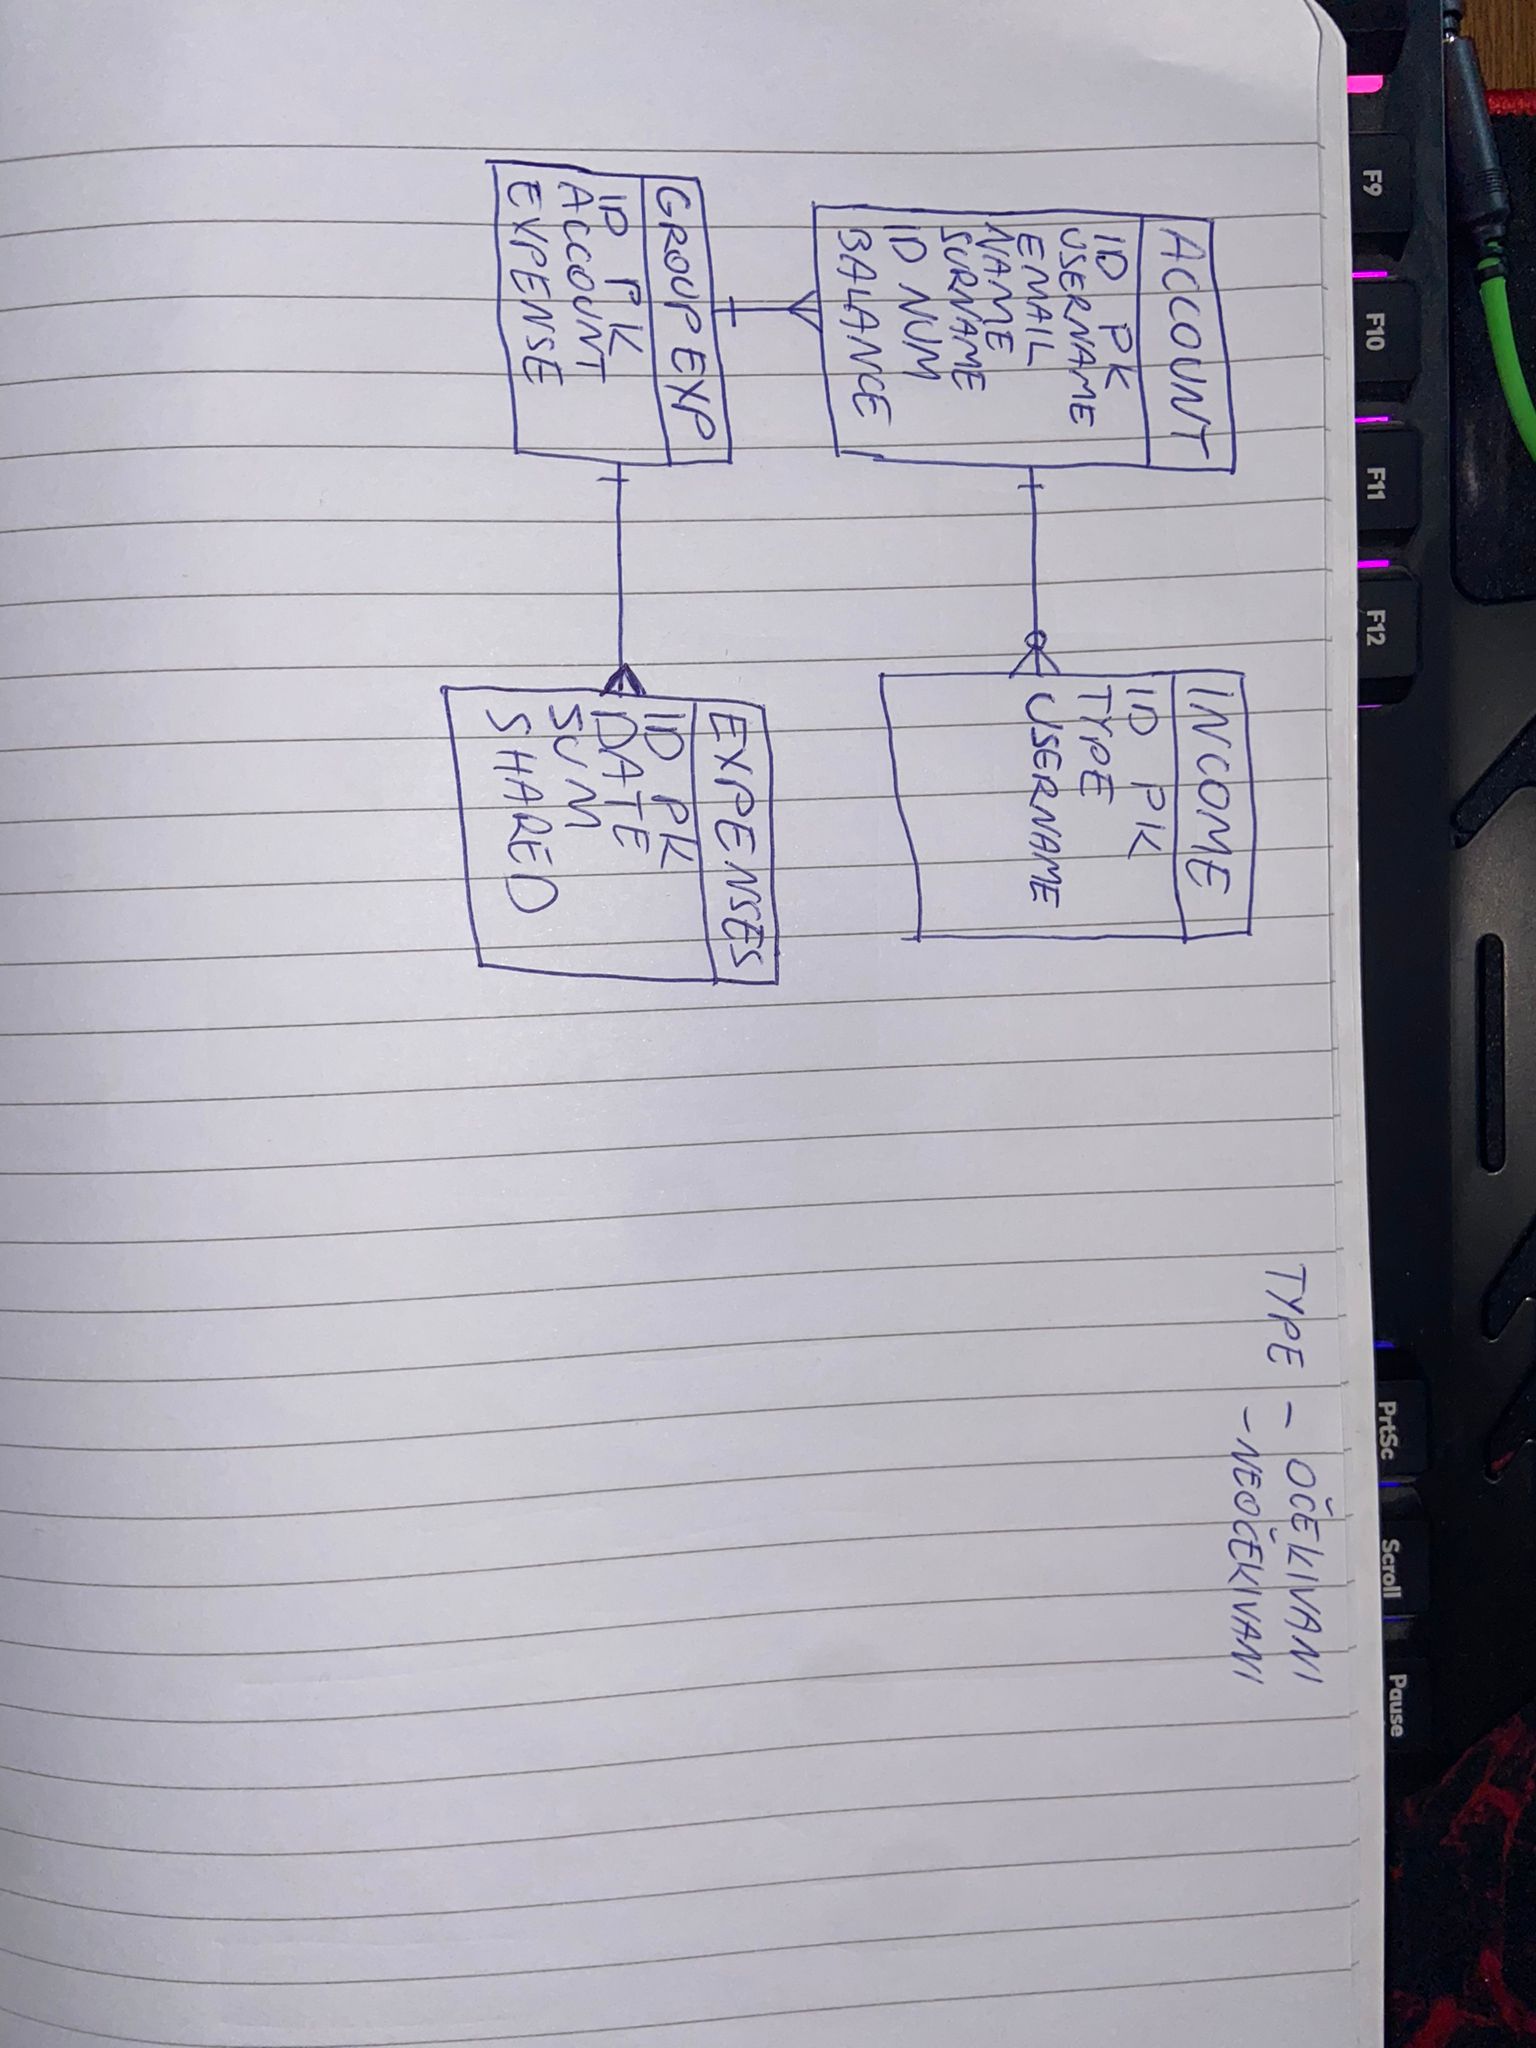 F9
F10
F11
F12
PrtSc
Scroll
Pause
TYPE - OČEKIVANI
- NEOČEKIVANI
ACCOUNT
ID PK
USERNAME
EMAIL
NAME
SURNAME
ID NUM
BALANCE
INCOME
ID PK
TYPE
USERNAME
GROUP EXP
ID PK
ACCOUNT
EXPENSE
EXPENSES
ID PK
DATE
SUM
SHARED